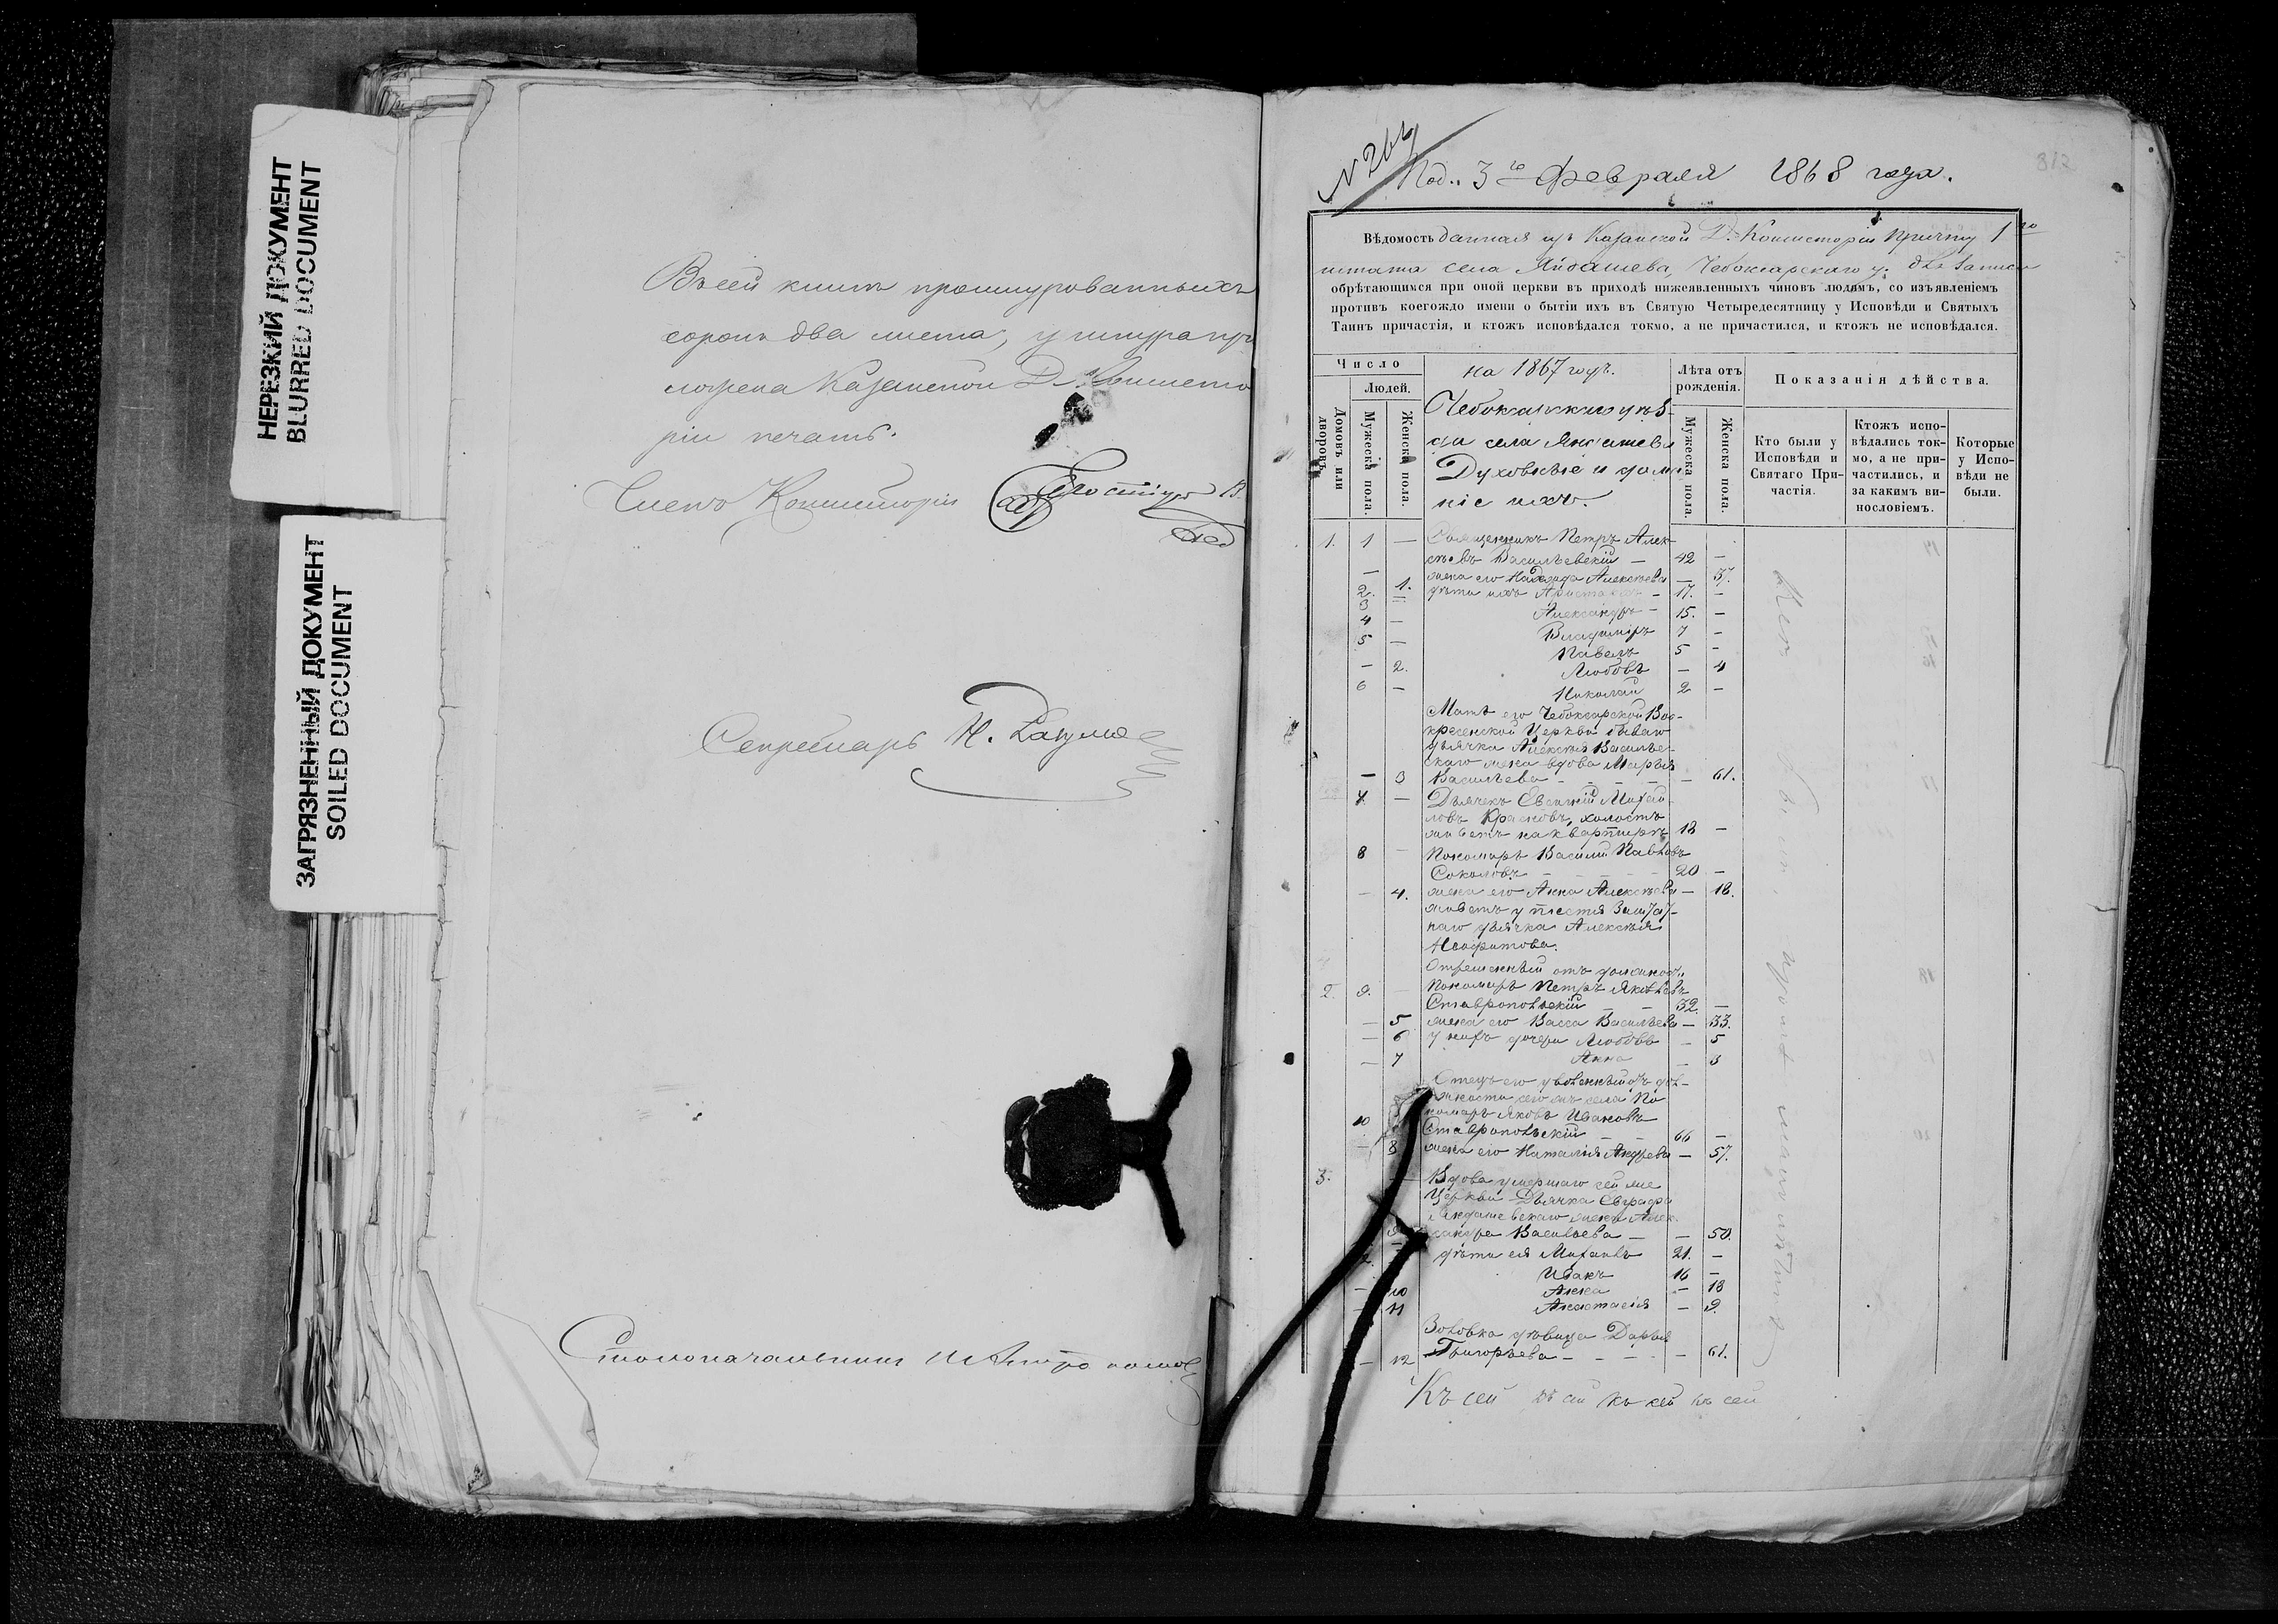 НЕРЕЗКИЙ ДОКУМЕНТ
BLURRED DOCUMENT
ЗАГРЯЗНЕННЫЙ ДОКУМЕНТ
SOILED DOCUMENT
Въ сей книге прошнурованныхъ
сорокъ два листа, у шнура при
ложена Казанской Д. Консисто
ріи печать.
Членъ Консисторіи
Секретарь Н.
Столоначальникъ
312
N 264
Под. 3го Февраля 1868 года.
Вѣдомость данная изъ Казанской Д. Консисторіи Причту 1го
штата села Яндашева, Чебоксарскаго у. для записи
обрѣтающимся при оной церкви въ приходѣ нижеявленныхъ чиновъ людямъ, со изъявленіемъ
противъ коегождо имени о бытіи ихъ въ Святую Четыредесятницу у Исповѣди и Святыхъ
Таинъ причастія, и ктожъ исповѣдался токмо, а не причастился, и ктожъ не исповѣдался.
Число
Людей.
Домовъ или дворовъ.
Мужеска пола.
Женска пола.
на 1867 годъ.
Чебоксарскаго уѣз-
да села Яндашева
Духовные и домаш-
ніе ихъ.
Лѣта отъ рожденія.
Мужеска пола.
Женска пола.
Показанія дѣйства.
Кто были у Исповѣди и Святаго При- частія.
Ктожъ испо- вѣдались ток- мо, а не при- частились, и за какимъ ви- нословіемъ.
Которые у Испо- вѣди не были.
1. 1 — Священникъ Петръ Алек-
сѣевъ Васильевскій — 42 —
— 1. жена его Надежда Алексѣева — 37.
2. — дѣти ихъ Аристархъ — 17. —
3 — Александръ — 15. —
4 — Владиміръ 7 —
5 — Павелъ 5 —
— 2. Любовь — 4
6 — Николай 2 —
Мать его Чебоксарской Вос-
кресенской Церкви бывшаго
дьячка Алексѣя Васильев-
скаго жена вдова Марья
— 3 Васильева — 61.
7 — Дьячекъ Евгеній Михай-
ловъ Красновъ, холостъ
живетъ на квартирѣ 18 —
8 — Пономарь Василій Павловъ
Соколовъ — 20 —
— 4. жена его Анна Алексѣева — 18.
живетъ у тестя Заштат-
наго дьячка Алексѣя
Неофитова.
Отрешенный отъ должнос.
2. 9. — Пономарь Петръ Яковлевъ
Ставропольскій — 32. —
— 5 жена его Васса Васильева — 33.
— 6 у нихъ дочери Любовь — 5
— 7 Анна — 3
Отецъ его уволенный отъ дол-
жности сего жъ села По
10 номарь Яковъ Ивановъ
Ставропольскій — 66 —
— 8 жена его Наталія Андреева — 57.
3. — Вдова умершаго сей же
Церкви Дьячка Евграфа
Яндашевскаго жена Алек-
9 сандра Васильева — — 50.
дѣти ея Михаилъ 21. —
Иванъ 16 —
— 10 Анна — 13
— 11 Анастасія — 9.
Золовка дѣвица Дарья
— 12 Григорьева — — 61.
Къ сей къ сей къ сей къ сей